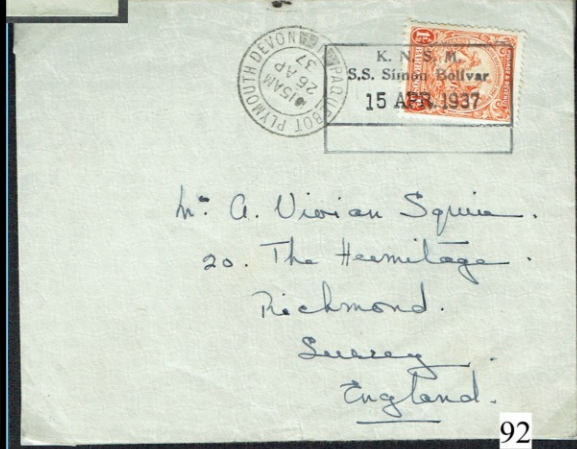 PAQUEBOT PLYMOUTH DEVON
15AM
26 AP
37
K. N. S. M.
S.S. Simón Bolívar
15 APR. 1937
Mr. A. Vivian Squire.
20. The Hermitage.
Richmond.
Surrey.
England.
92